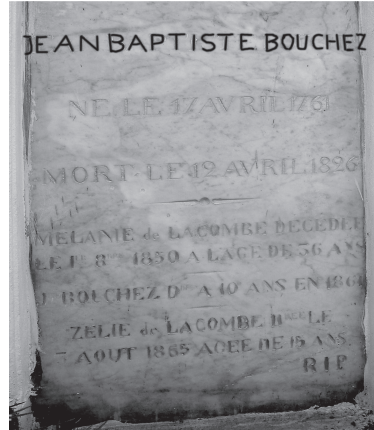 JEAN BAPTISTE BOUCHEZ
NE LE 17 AVRIL 1761
MORT LE 12 AVRIL 1826
MELANIE de LACOMBE DECEDEE
LE 1850 A L'AGE DE 36 ANS
BOUCHEZ A 40 ANS EN
ZELIE de LACOMBE LE
7 AOUT 1865 AGEE DE 15 ANS
RIP